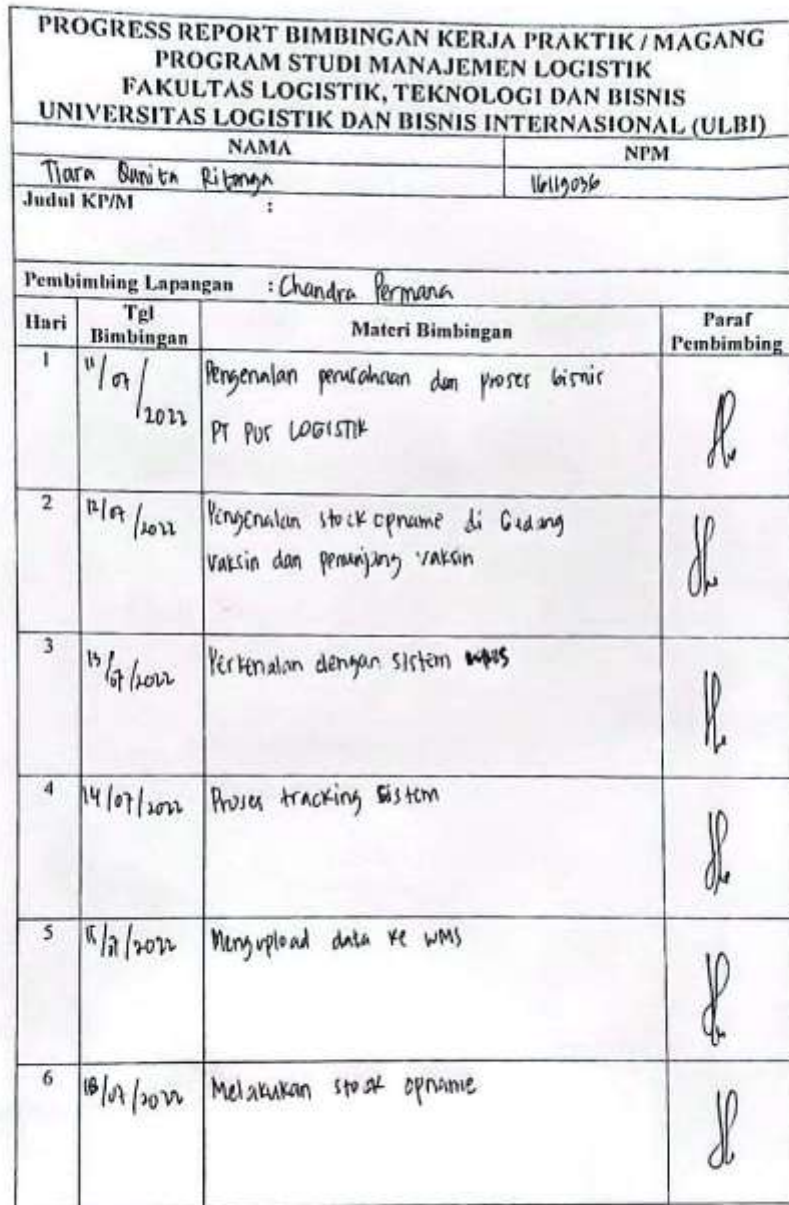 PROGRESS REPORT BIMBINGAN KERJA PRAKTIK / MAGANG
PROGRAM STUDI MANAJEMEN LOGISTIK
FAKULTAS LOGISTIK, TEKNOLOGI DAN BISNIS
UNIVERSITAS LOGISTIK DAN BISNIS INTERNASIONAL (ULBI)
NAMA NPM
Tiara 16119036
Judul KP/M :
Pembimbing Lapangan : Chandra Permana
Hari Tgl Bimbingan Materi Bimbingan Paraf Pembimbing
1 11/07/2022 Pengenalan perusahaan dan proses bisnis
PT POS LOGISTIK
2 12/07/2022 Pengenalan stock opname di Gudang
vaksin dan penunjang vaksin
3 13/07/2022 Perkenalan dengan sistem WMS
4 14/07/2022 Proses tracking sistem
5 15/07/2022 Mengupload data ke WMS
6 18/07/2022 Melakukan stock opname